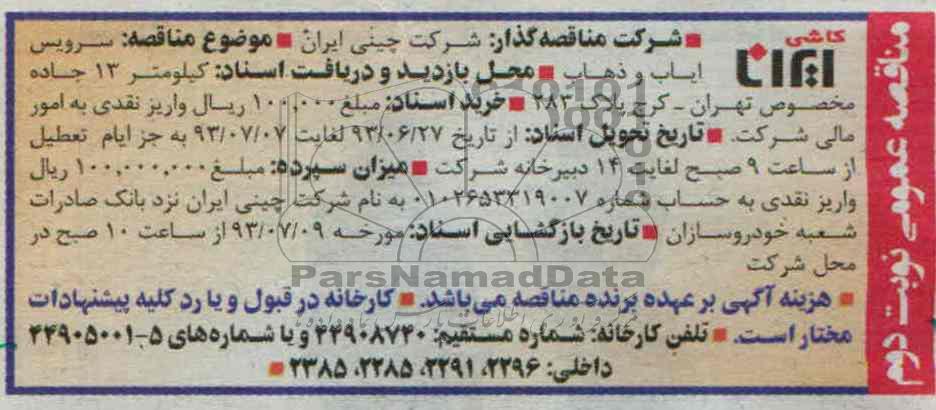 مناقصه عمومی نوبت دوم
کاشی ایرانا
■ شرکت مناقصه‌گذار: شرکت چینی ایران ■ موضوع مناقصه: سرویس
ایاب و ذهاب ■ محل بازدید و دریافت اسناد: کیلومتر ۱۳ جاده
مخصوص تهران ـ کرج پلاک ۲۸۳ ■ خرید اسناد: مبلغ ۱۰۰,۰۰۰ ریال واریز نقدی به امور
مالی شرکت. ■ تاریخ تحویل اسناد: از تاریخ ۹۳/۰۶/۲۷ لغایت ۹۳/۰۷/۰۷ به جز ایام تعطیل
از ساعت ۹ صبح لغایت ۱۴ دبیرخانه شرکت ■ میزان سپرده: مبلغ ۱۰۰,۰۰۰,۰۰۰ ریال
واریز نقدی به حساب شماره ۰۱۰۲۶۵۳۳۱۹۰۰۷ به نام شرکت چینی ایران نزد بانک صادرات
شعبه خودروسازان ■ تاریخ بازگشایی اسناد: مورخه ۹۳/۰۷/۰۹ از ساعت ۱۰ صبح در
محل شرکت
ParsNamadData
■ هزینه آگهی بر عهده برنده مناقصه می‌باشد. ■ کارخانه در قبول و یا رد کلیه پیشنهادات
مختار است. ■ تلفن کارخانه: شماره مستقیم: ۴۴۹۰۸۷۴۰ و یا شماره‌های ۵-۴۴۹۰۵۰۰۱
داخلی: ۲۲۹۶، ۲۲۹۱، ۲۲۸۵، ۲۳۸۵ ■